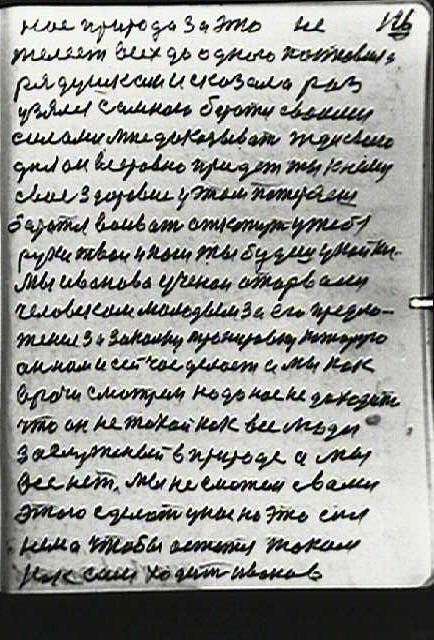 ное природа за это не 126
желает всех до одного поставила
рядушком и сказала раз
узялся самного боротся своими
силами мне доказыват жди своего
дня он всеровно придет ты к нему
свое здоровие у этом потеряеш
боротся воиват отсохнут у тебя
руки твои и ноги ты будиш у
мы иванова ученои оторвали
человеком молодым за его предло-
жения за закалку тренировку которую
он нам и сейчас делает и мы как
врачи смотрим но до нас не доходит
что он не такой как все люди
заслуженый в природе а мы
все нет. мы не сможем с вами
этого сделат у нас на это сил
нема чтобы остатся таким
как сам ходит иванов